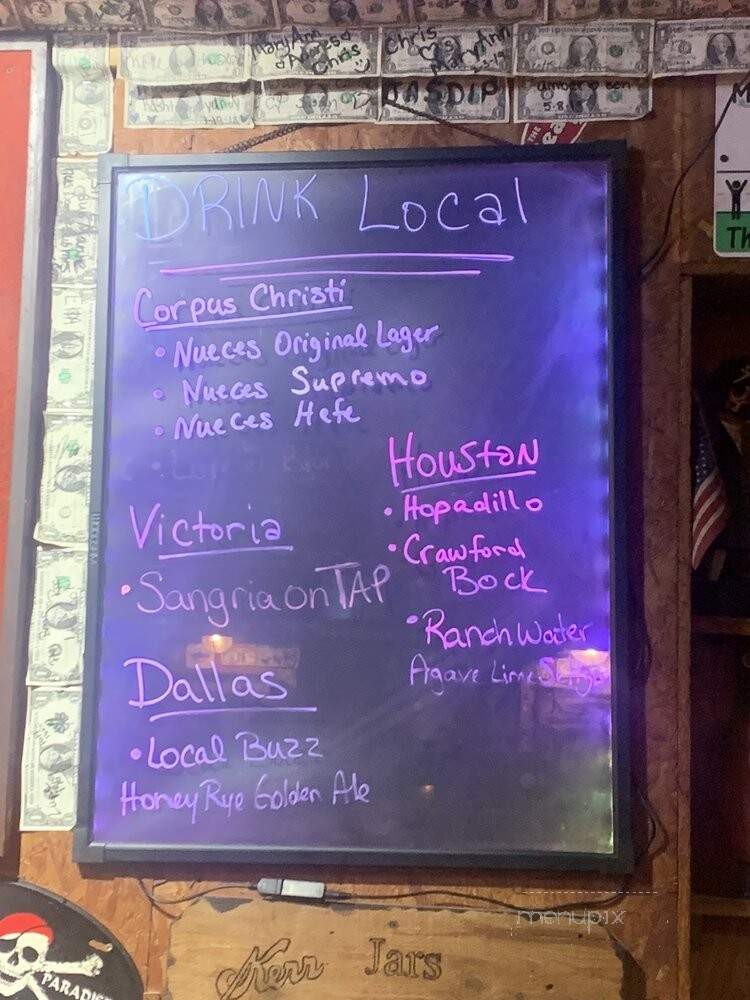 MaryAnn
Chris
Chris
MaryAnn
JASDIP
5.8.19
THE
DRINK Local
Corpus Christi
• Nueces Original Lager
• Nueces Supremo
• Nueces Hefe
Houston
• Hopadillo
• Crawford
Bock
• Ranch Water
Agave Lime
Victoria
• Sangria on TAP
Dallas
• Local Buzz
Honey Rye Golden Ale
menupix
Kerr Jars
PARADISE